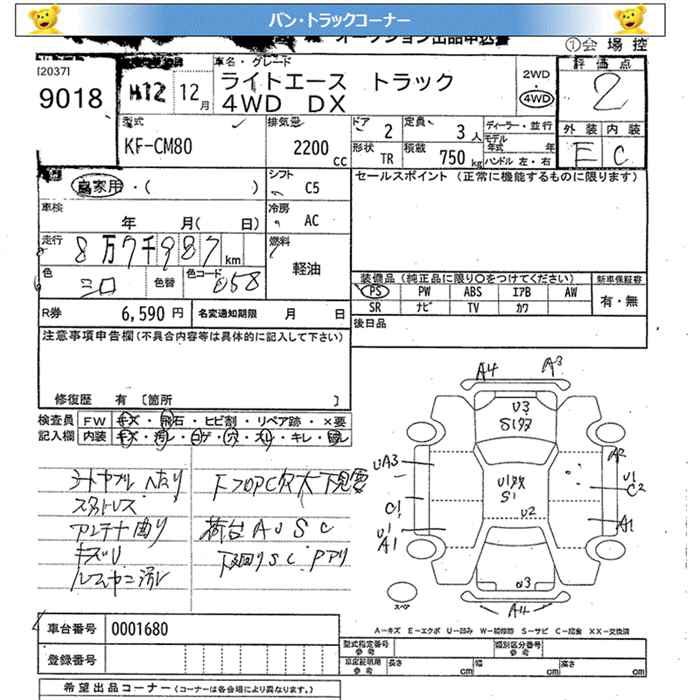 バン・トラックコーナー
オークション出品申込書
①会場控
[2037]
9018
H12 12月
車名・グレード
ライトエース トラック
4WD DX
2WD
4WD
評価点
2
外装 内装
E C
型式
KF-CM80
排気量
2200 cc
ドア 2
定員 3人
形状 TR
積載 750 kg
ディーラー・並行
モデル年式 年
ハンドル 左・右
自家用・( )
シフト C5
セールスポイント (正常に機能するものに限ります)
車検
年 月( 日)
冷房 AC
走行
8万7千987km
燃料
軽油
色 シロ
色替
色コード 058
装備品 (純正品に限り〇をつけてください)
新車保証書
PS PW ABS エアB AW
有・無
SR ナビ TV カワ
R券 6,590円
名変通知期限 月 日
後日品
注意事項申告欄(不具合内容等は具体的に記入して下さい)
修復歴 有 [箇所 ]
検査員 FW キズ・飛石・ヒビ割・リペア跡・×要
記入欄 内装 キズ・汚レ・コゲ・穴・スレ・キレ・
シートヤブレ ヘタリ
スタットレス
アンテナ曲り
キズU
ルームヤニ汚レ
下フロアC穴大下見要
荷台AUSC
下廻りSC.Pアリ
A4 A3
U3
UA3
C1
U1
A1
U2
A2
U1
C2
A1
U3
A4
スペア
A－キズ E－エクボ U－凹み W－補修跡 S－サビ C－腐食 XX－交換済
車台番号 0001680
登録番号
型式指定番号 参考
類別区分番号 参考
車庫証明用 参考
長さ cm
幅 cm
高さ cm
希望出品コーナー (コーナーは各会場により異なります。)